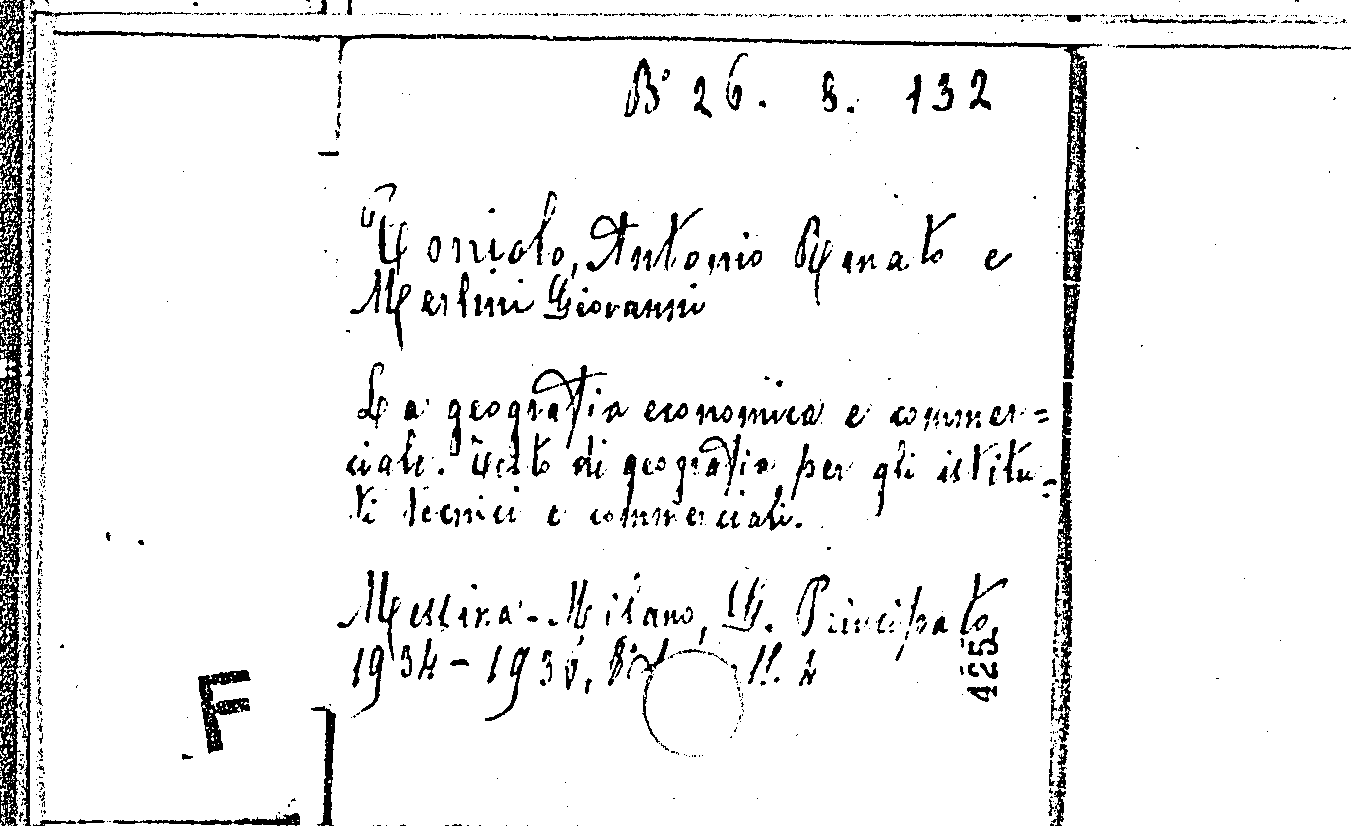 B° 26. 8. 132
Toniolo, Antonio Renato e
Merlini Giovanni
La geografia economica e commer=
ciale. Testo di geografia per gli istitu=
ti tecnici e commerciali.
Messina-Milano, G. Principato,
1934-1936,
425
F